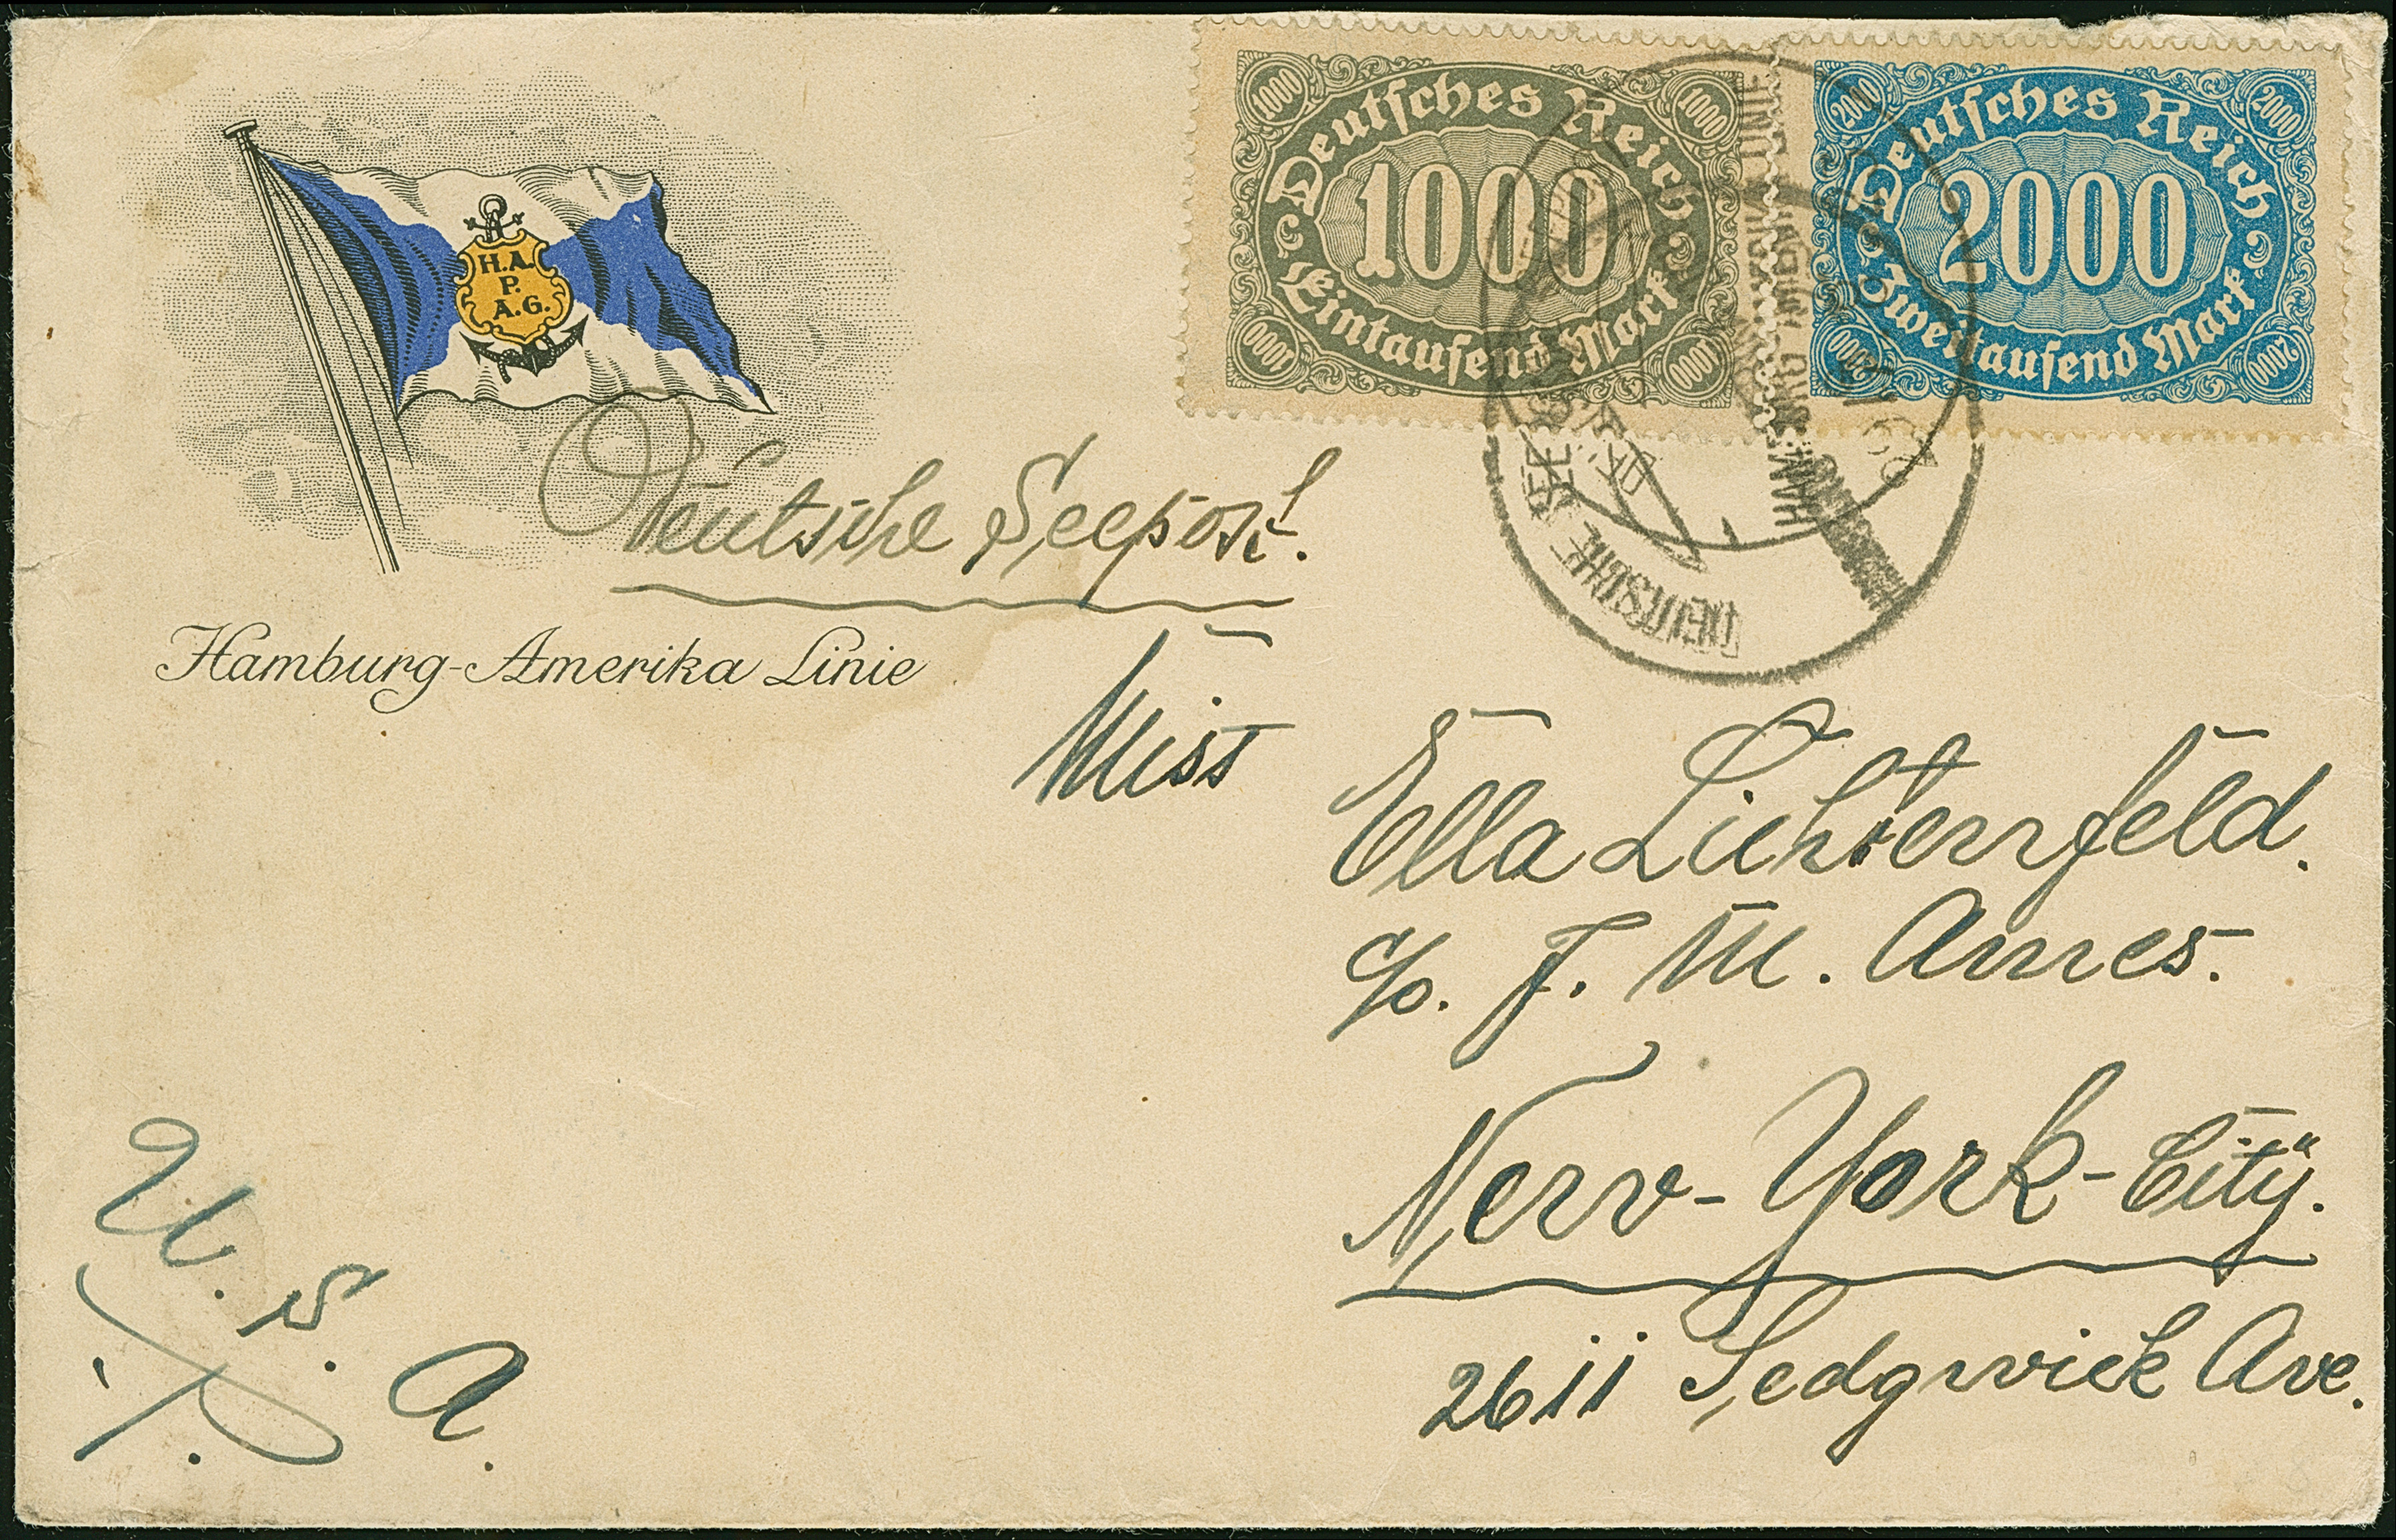 H.A.
P.
A.G.
Hamburg-Amerika Linie
1000
1000
Deutsches Reich
1000
Eintausend Mark
1000
1000
2000
2000
Deutsches Reich
2000
Zweitausend Mark
2000
2000
DEUTSCHE SEEPOST
HAMBURG AMERIKA LINIE
Deutsche Seepost.
Miss
Ella Lichterfeld.
c/o. F. M. Ames.
New-York-City.
2611 Sedgwick Ave.
U. S. A.